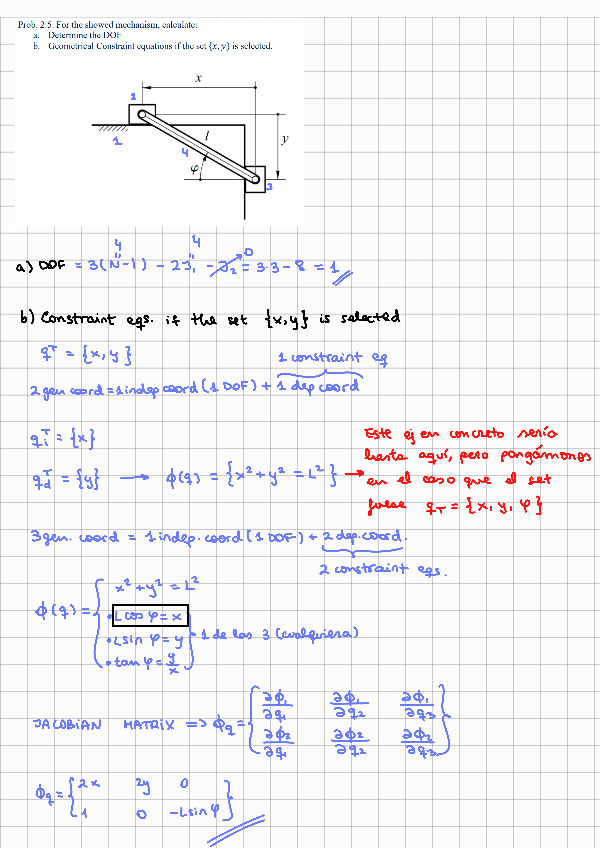 Prob. 2.5. For the showed mechanism, calculate:
a. Determine the DOF
b. Geometrical Constraint equations if the set {x, y} is selected.
x
2
1
l
y
4
φ
3
4
4
0
a) DOF = 3(N-1) - 2J₁ - J₂ = 3·3 - 8 = 1
b) Constraint eqs. if the set {x,y} is selected
qᵀ = {x, y}
1 constraint eq
2 gen coord = 1 indep coord (1 DOF) + 1 dep coord
qᵢᵀ = {x}
q_dᵀ = {y} → ϕ(q) = {x² + y² = L²} →
Este ej en concreto sería
hasta aquí, pero pongámonos
en el caso que el set
fuese q_T = {x, y, φ}
3 gen. coord = 1 indep. coord (1 DOF) + 2 dep. coord.
2 constraint eqs.
ϕ(q) = { x² + y² = L²
• L cos φ = x
• L sin φ = y
• tan φ = y/x }
1 de las 3 (cualquiera)
JACOBIAN MATRIX => ϕq = { ∂ϕ₁/∂q₁ ∂ϕ₁/∂q₂ ∂ϕ₁/∂q₃
∂ϕ₂/∂q₁ ∂ϕ₂/∂q₂ ∂ϕ₂/∂q₃ }
ϕq = { 2x 2y 0
1 0 -L sin φ }